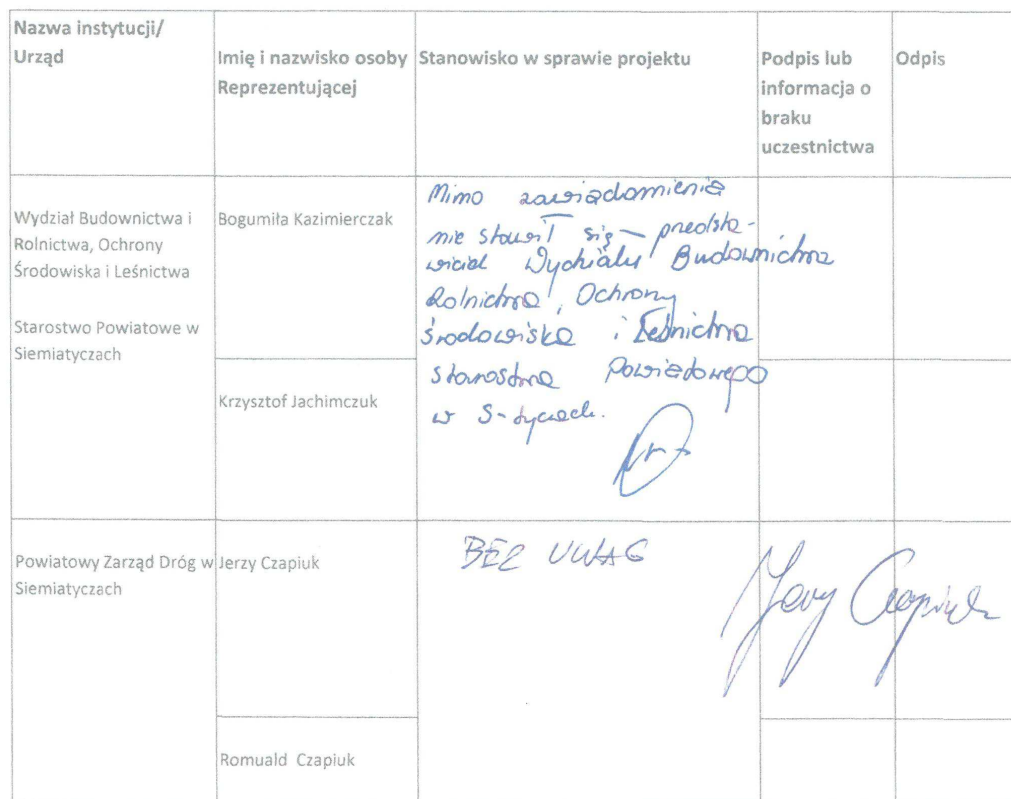 Nazwa instytucji/
Urząd
Imię i nazwisko osoby
Reprezentującej
Stanowisko w sprawie projektu
Podpis lub
informacja o
braku
uczestnictwa
Odpis
Wydział Budownictwa i
Rolnictwa, Ochrony
Środowiska i Leśnictwa
Starostwo Powiatowe w
Siemiatyczach
Bogumiła Kazimierczak
Mimo zawiadomienia
nie stawił się przedsta-
wiciel Wydziału Budownictwa
Rolnictwa, Ochrony
Środowiska i Leśnictwa
Starostwa Powiatowego
w S-tyczach.
Krzysztof Jachimczuk
Powiatowy Zarząd Dróg w
Siemiatyczach
Jerzy Czapiuk
BEZ UWAG
Jerzy Czapiuk
Romuald Czapiuk